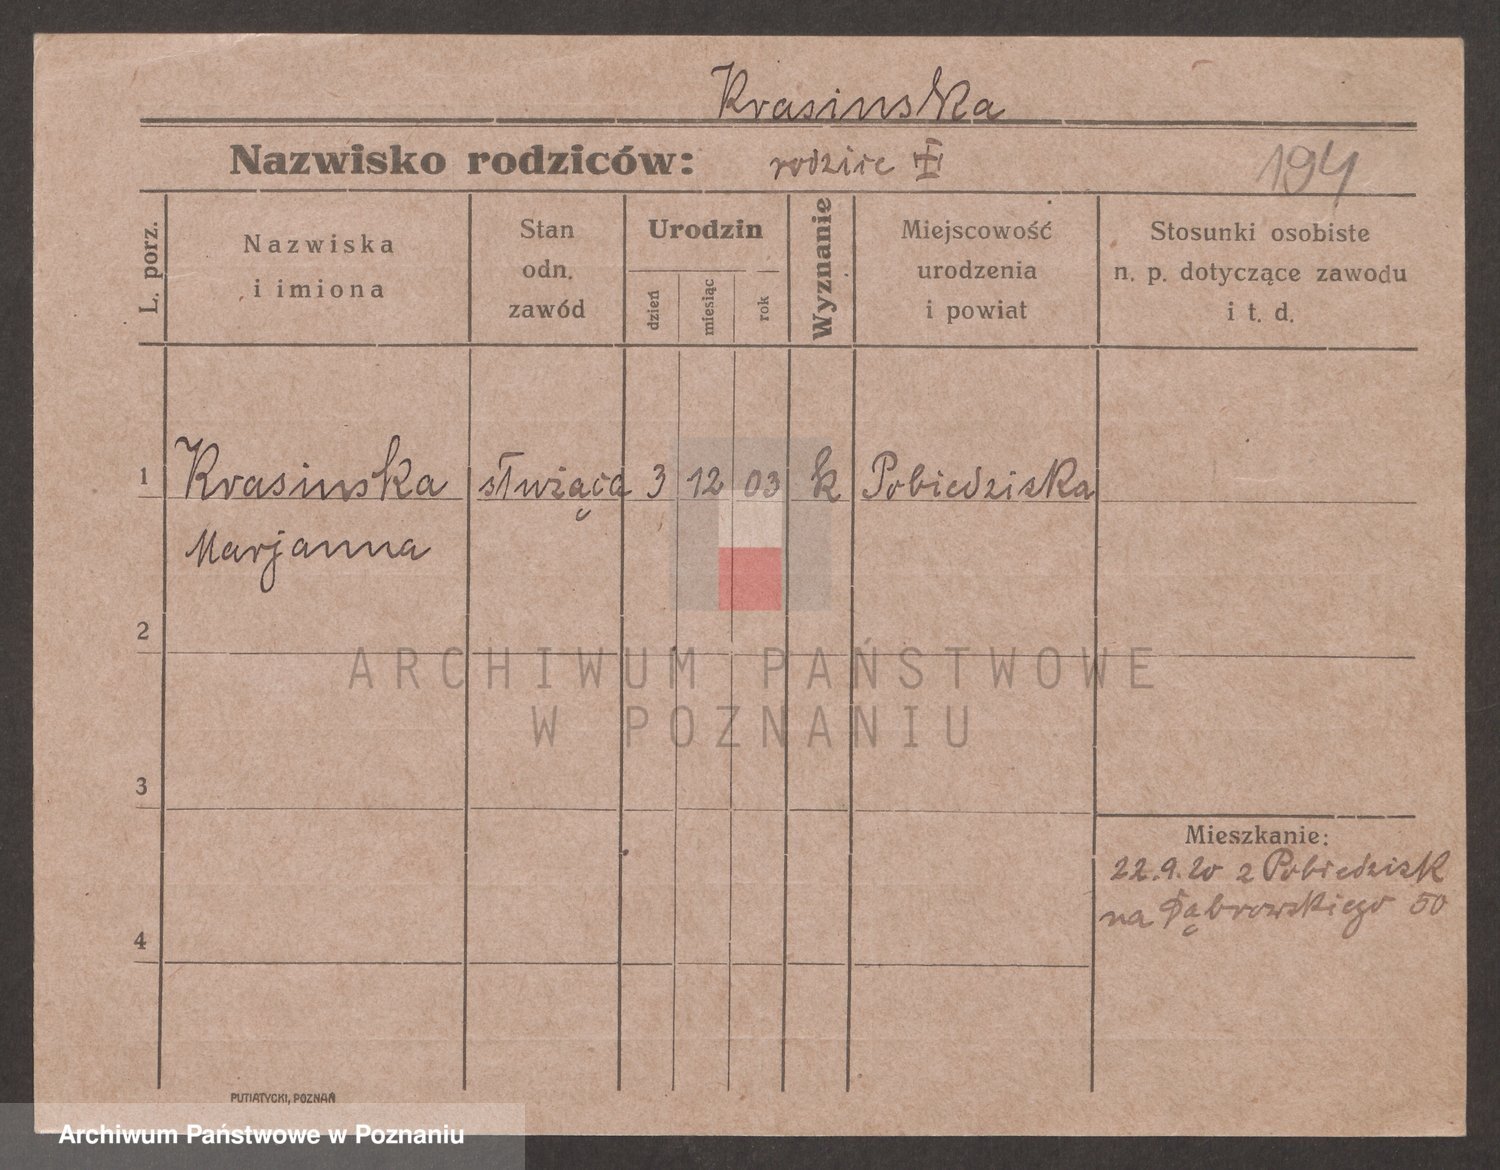 Krasinska
Nazwisko rodziców: rodzice
194
L. porz.
Nazwiska
i imiona
Stan
odn.
zawód
Urodzin
dzień
miesiąc
rok
Wyznanie
Miejscowość
urodzenia
i powiat
Stosunki osobiste
n. p. dotyczące zawodu
i t. d.
1 Krasinska służąca 3 12 03 k Pobiedziska
Marjanna
2
ARCHIWUM PAŃSTWOWE
W POZNANIU
3
Mieszkanie:
22.9.20 z Pobiedzisk
na Dąbrowskiego 50
4
PUTIATYCKI, POZNAŃ
Archiwum Państwowe w Poznaniu